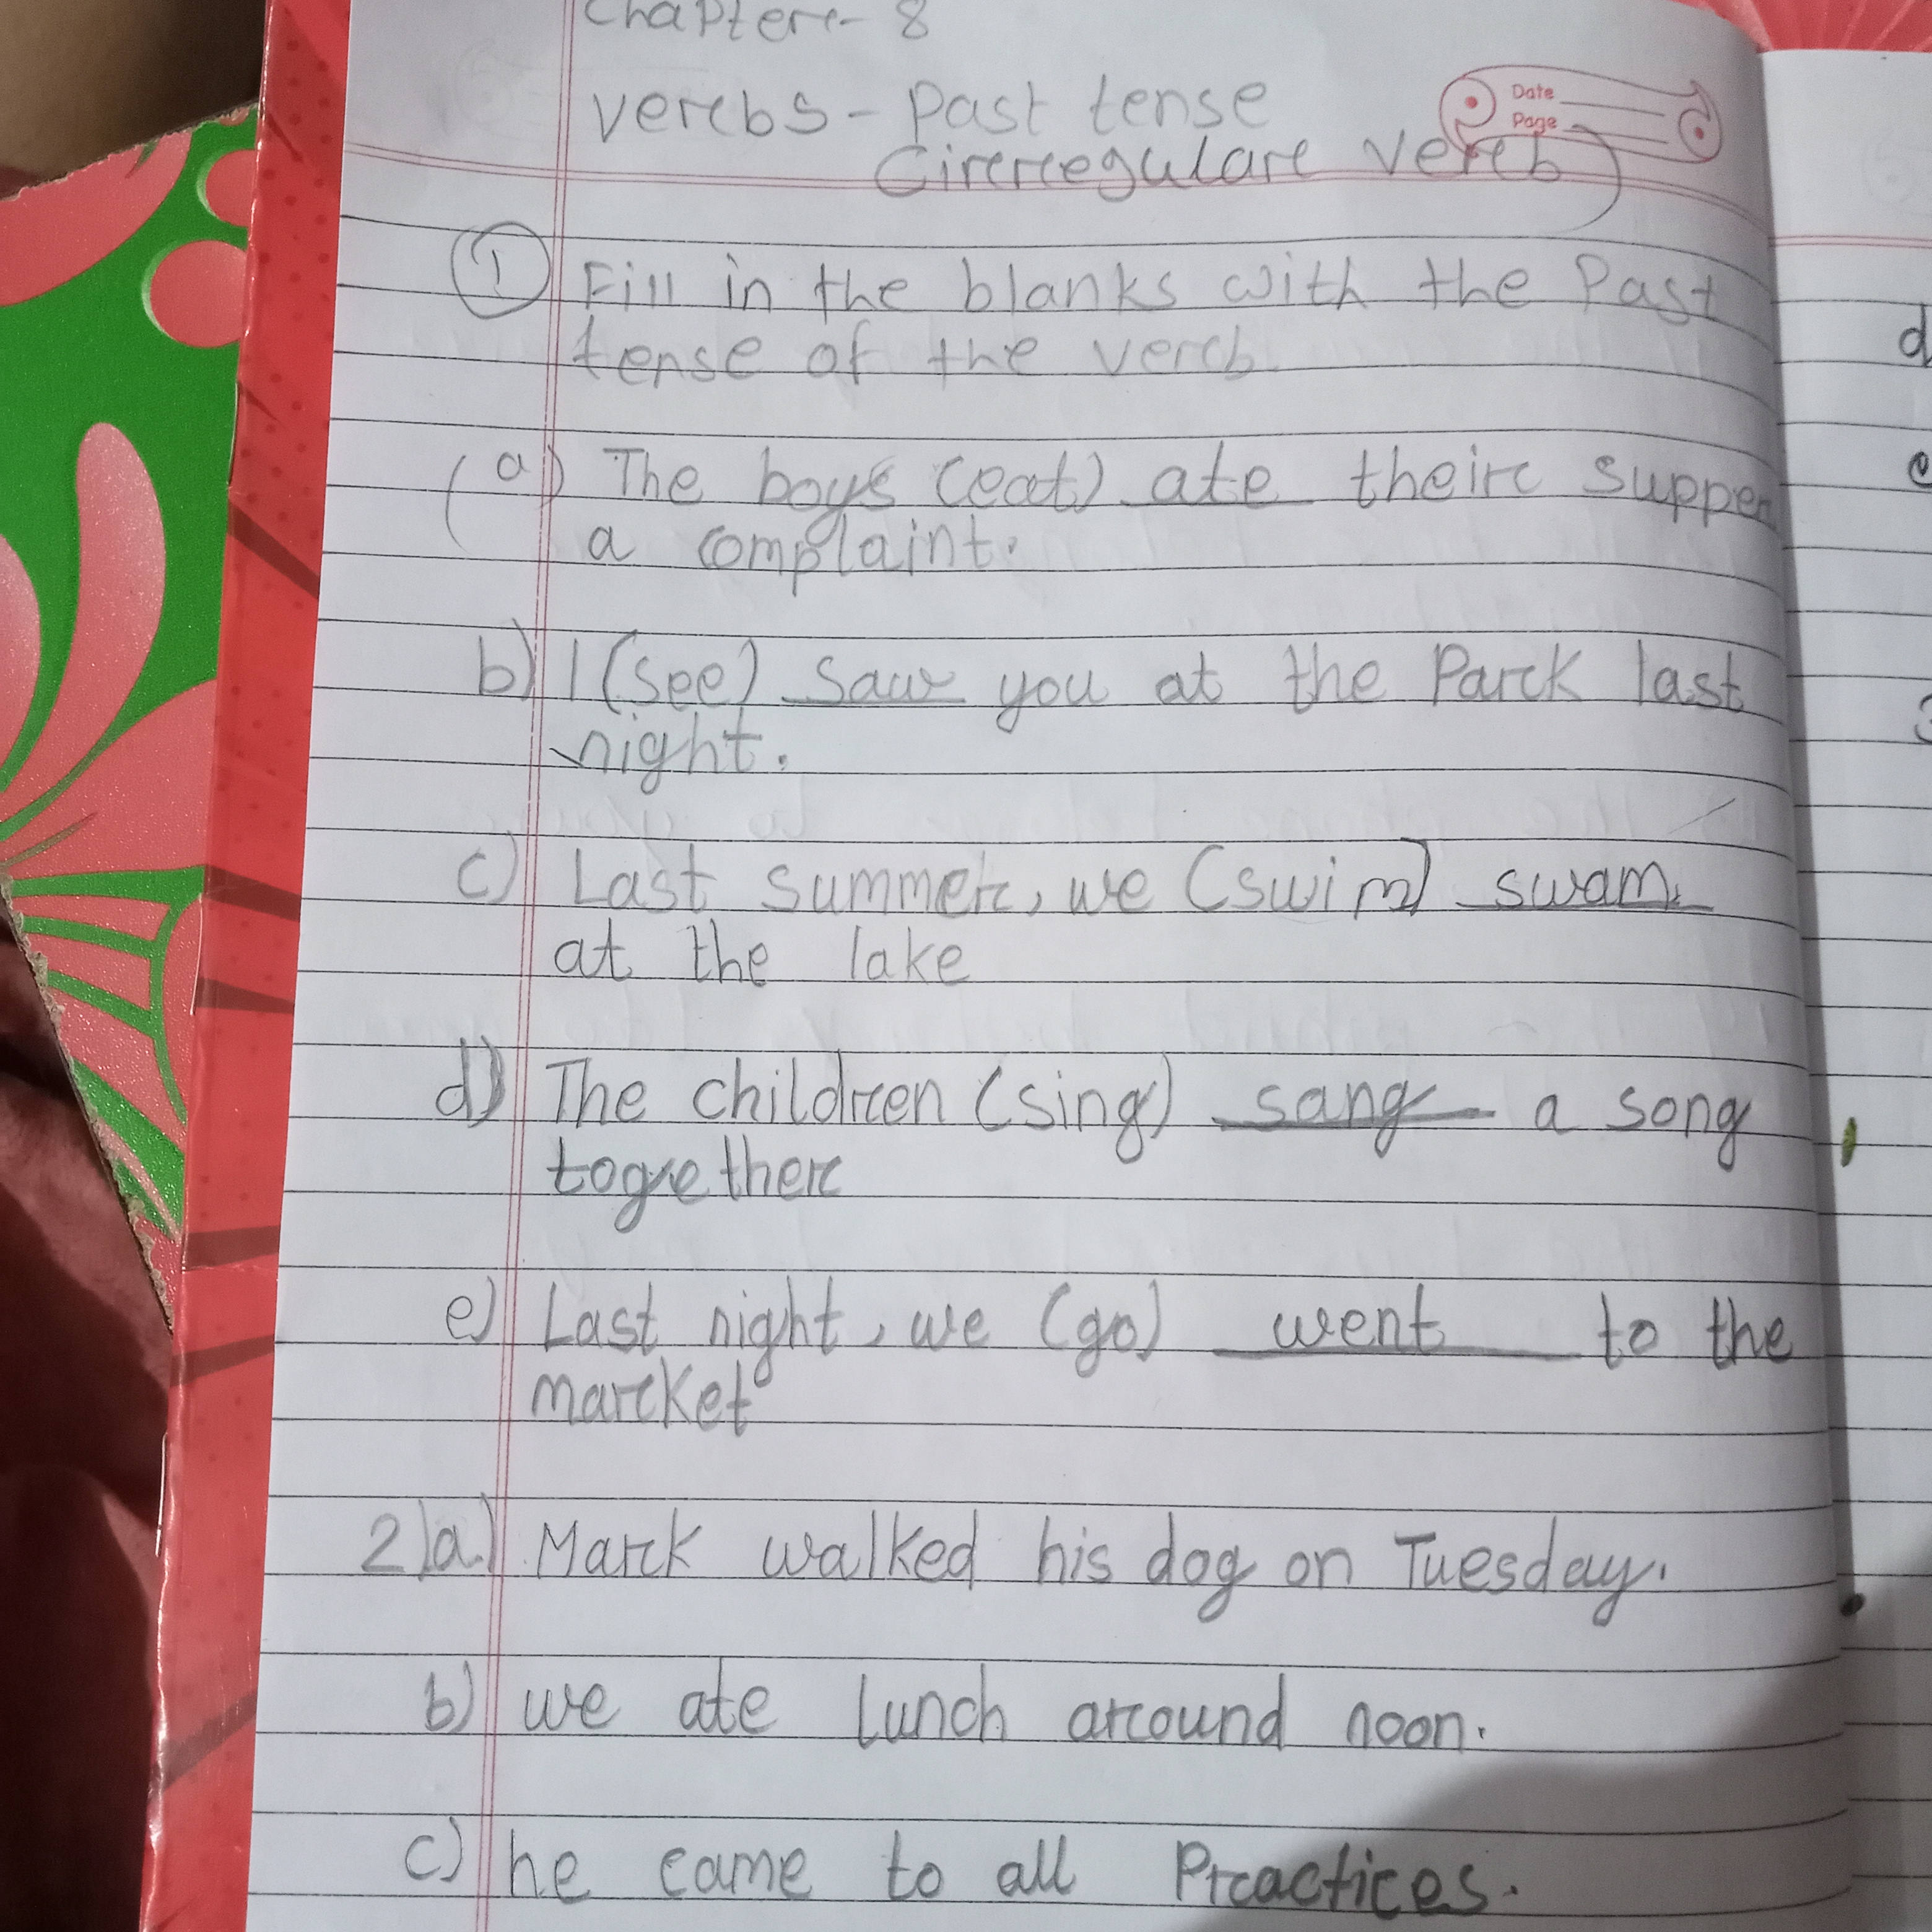 Chapter- 8
verbs - Past tense
Date
Page
(irregular verb)
1 Fill in the blanks with the Past
tense of the verb.
(a) The boys (eat) ate their supper
a complaint.
b) I (see) saw you at the Park last
night.
c) Last summer, we (swim) swam
at the lake
d) The children (sing) sang a song
together
e) Last night, we (go) went to the
market
2)a) Mark walked his dog on Tuesday.
b) we ate lunch around noon.
c) he came to all Practices.
d
e